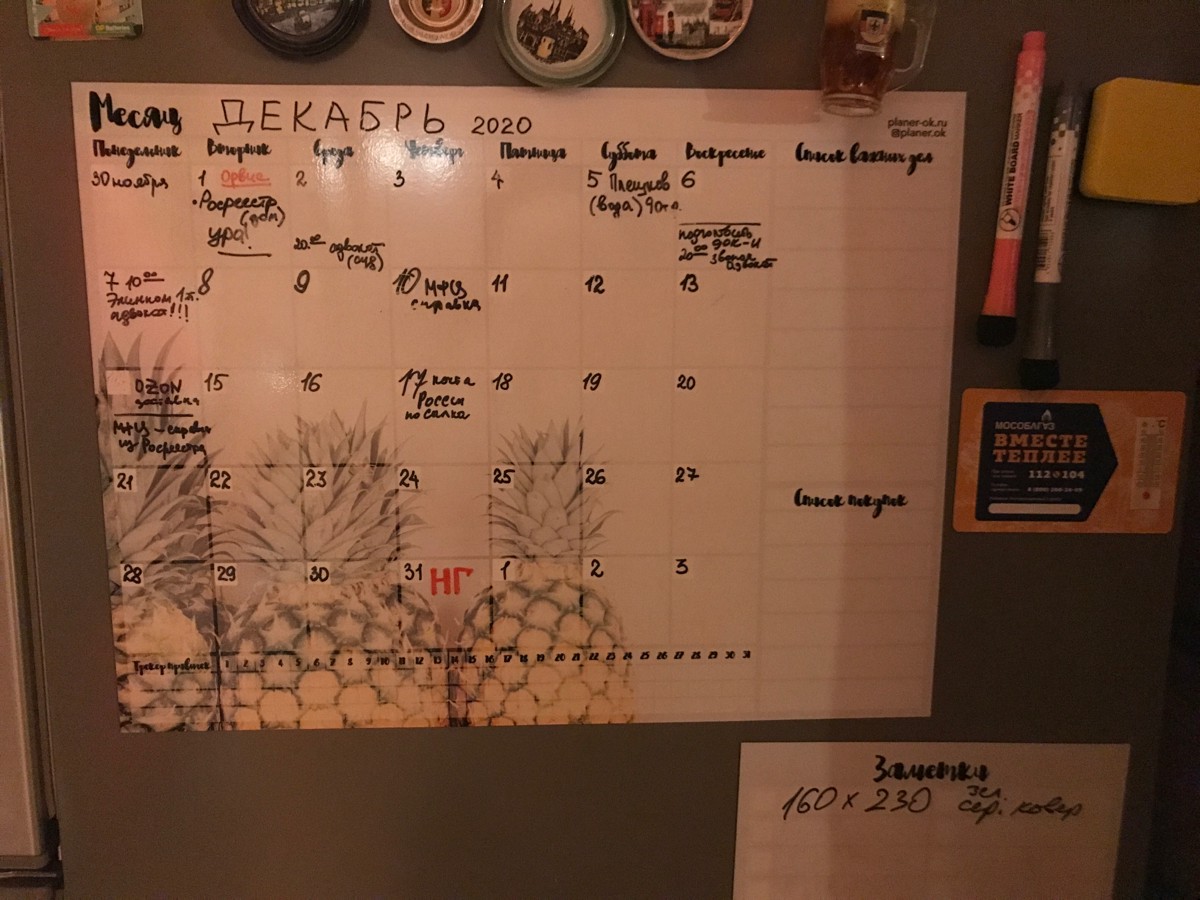 Месяц ДЕКАБРЬ 2020
planer-ok.ru
@planer.ok
Понедельник Вторник Среда Четверг Пятница Суббота Воскресение Список важных дел
30 ноября
1
• Росреестр
(дом)
ура!
2
20.00 адвокат
3
4
5 Плешков
(вода)
6
подготовить
док-и
20.00 звонок
адвокат
7 10.00
адвокат!!!
8
9
10 МФЦ
справка
11
12
13
OZON
доставка
МФЦ – справ
из Росреестра
15
16
17 почта
России
посылка
18
19
20
21
22
23
24
25
26
27
Список покупок
28
29
30
31 НГ
1
2
3
Трекер привычек 1 2 3 4 5 6 7 8 9 10 11 12 13 14 15 16 17 18 19 20 21 22 23 24 25 26 27 28 29 30 31
WHITE BOARD MARKER
МОСОБЛГАЗ
ВМЕСТЕ
ТЕПЛЕЕ
112 104
Заметки
160 x 230
сер. ковер